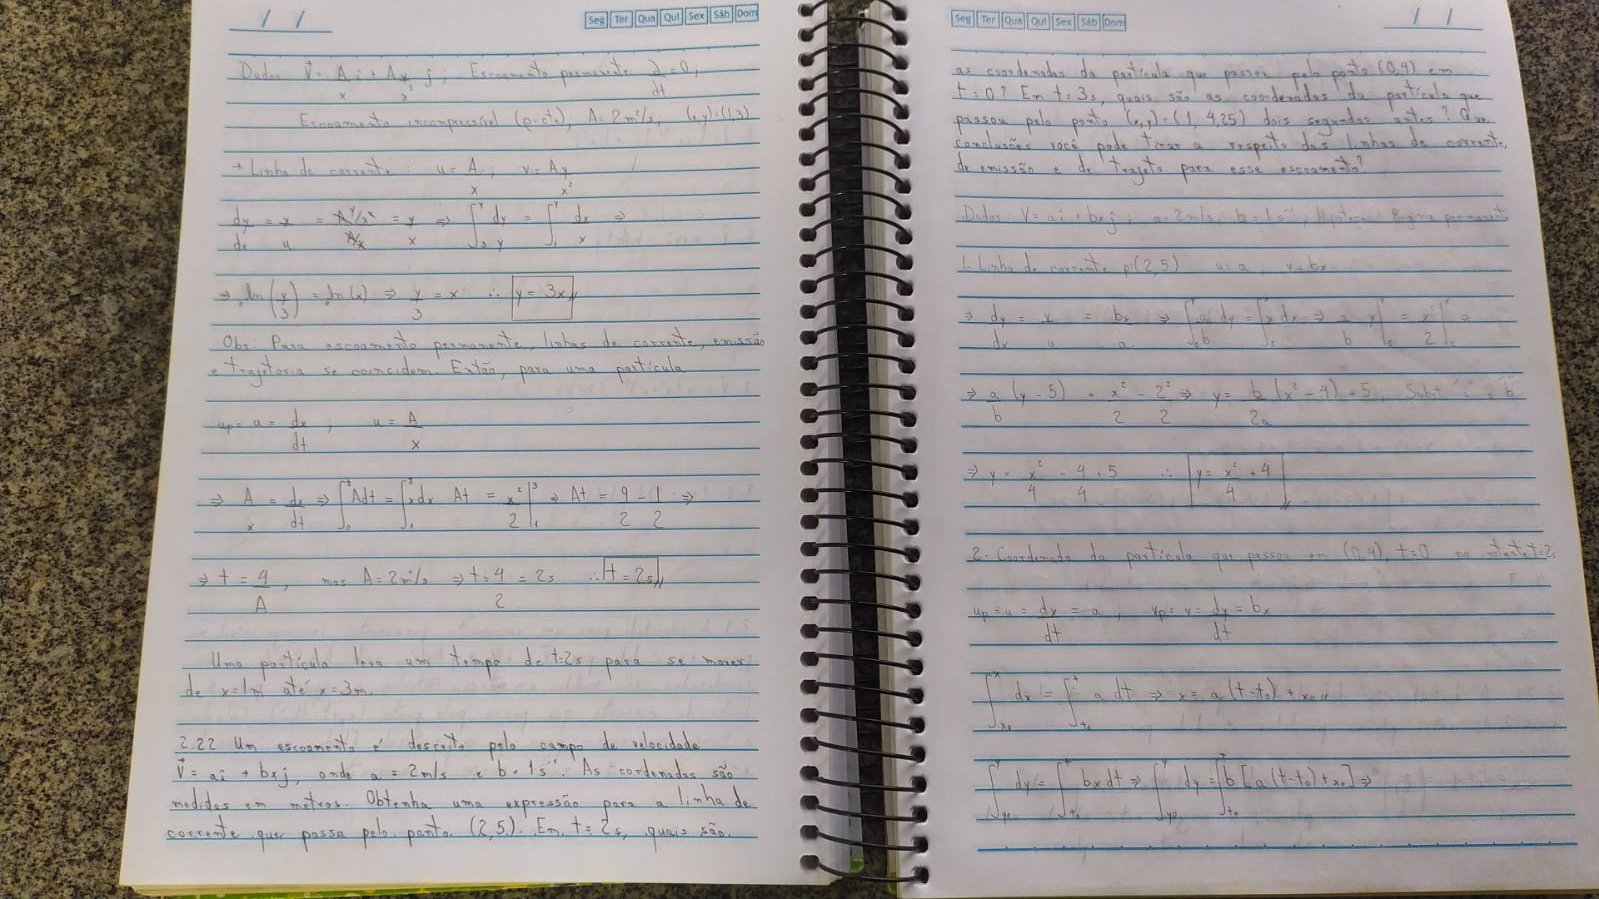 / /
Seg Ter Qua Qui Sex Sáb Dom
Dados V⃗ = A/x i + Ay/x² j; Escoamento permanente ∂/∂t = 0;
Escoamento incompressível (ρ=cte), A=2m²/s, (x,y)=(1,3)
→ Linha de corrente: u = A/x, v = Ay/x²
dy/dx = v/u = (Ay/x²)/(A/x) = y/x ⇒ ∫₃^y dy/y = ∫₁^x dx/x ⇒
⇒ ln(y/3) = ln(x) ⇒ y/3 = x ∴ y = 3x
Obs: Para escoamento permanente, linhas de corrente, emissão
e trajetória se coincidem. Então, para uma partícula
up = u = dx/dt, u = A/x
⇒ A/x = dx/dt ⇒ ∫₀^t Adt = ∫₁³ x dx At = x²/2 |₁³ ⇒ At = 9/2 - 1/2 ⇒
⇒ t = 4/A, mas A = 2m²/s ⇒ t = 4/2 = 2s ∴ t = 2s
Uma partícula leva um tempo de t=2s para se mover
de x=1m até x=3m.
2.22 Um escoamento é descrito pelo campo de velocidade
V⃗ = ai + bxj, onde a = 2m/s e b = 1s⁻¹. As cordenadas são
medidas em metros. Obtenha uma expressão para a linha de
corrente que passa pelo ponto (2,5). Em t = 2s, quais são
Seg Ter Qua Qui Sex Sáb Dom
/ /
as coordenadas da partícula que passou pelo ponto (0,4) em
t = 0? Em t = 3s, quais são as cordenadas da partícula que
passou pelo ponto (x,y) = (1, 4,25) dois segundos antes? Que
conclusões você pode tirar a respeito das linhas de corrente,
de emissão e de trajeto para esse escoamento?
Dados: V = ai + bxj, a = 2m/s, b = 1s⁻¹, Regime permanente
1- Linha de corrente p(2,5) u = a, v = bx
⇒ dy/dx = v/u = bx/a ⇒ ∫₅^y a/b dy = ∫₂^x x dx ⇒ a/b y|₅^y = x²/2|₂^x ⇒
⇒ a/b (y - 5) = x²/2 - 2²/2 ⇒ y = b/2a (x² - 4) + 5, Subst a e b
⇒ y = x²/4 - 4/4 + 5 ∴ y = x²/4 + 4
2- Coordenada da partícula que passou em (0,4), t=0 no instante t=2s
up = u = dx/dt = a; vp = v = dy/dt = bx
∫ₓ₀^x dx = ∫ₜ₀^t a dt ⇒ x = a(t-t₀) + x₀
∫ᵧ₀^y dy = ∫ₜ₀^t bx dt ⇒ ∫ᵧ₀^y dy = ∫ₜ₀^t b[a(t-t₀) + x₀] ⇒